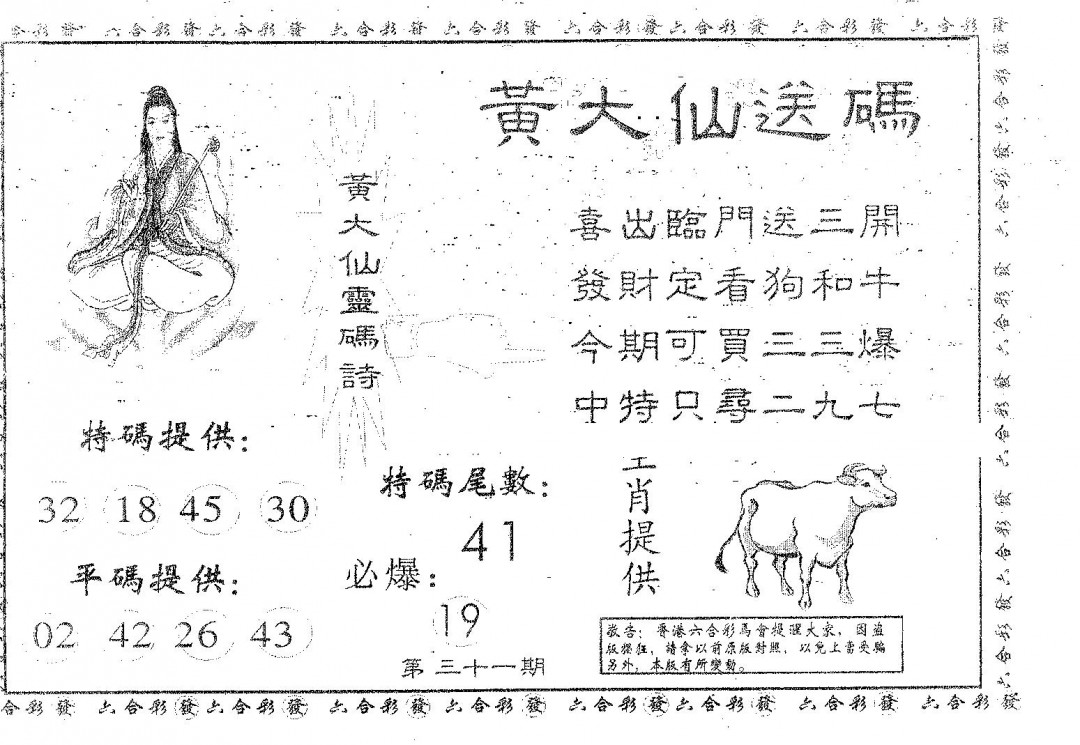 六合彩發六合彩發 六合彩發 六合彩發 六合彩發六合彩發 六合彩發 六合彩
黃大仙送碼
黃大仙靈碼詩
喜出臨門送三開
發財定看狗和牛
今期可買二三爆
中特只尋二九七
特碼提供：
32 18 45 30
平碼提供：
02 42 26 43
特碼尾數：
41
必爆：
19
第三十一期
肖提供
敬告：香港六合彩馬會提醒大家，因盜
版猖狂，請拿以前原版對照，以免上當受騙
另外，本版有所變動。
合彩發 六合彩發六合彩發 六合彩發 六合彩發 六合彩發六合彩發 六合彩發 六合彩發